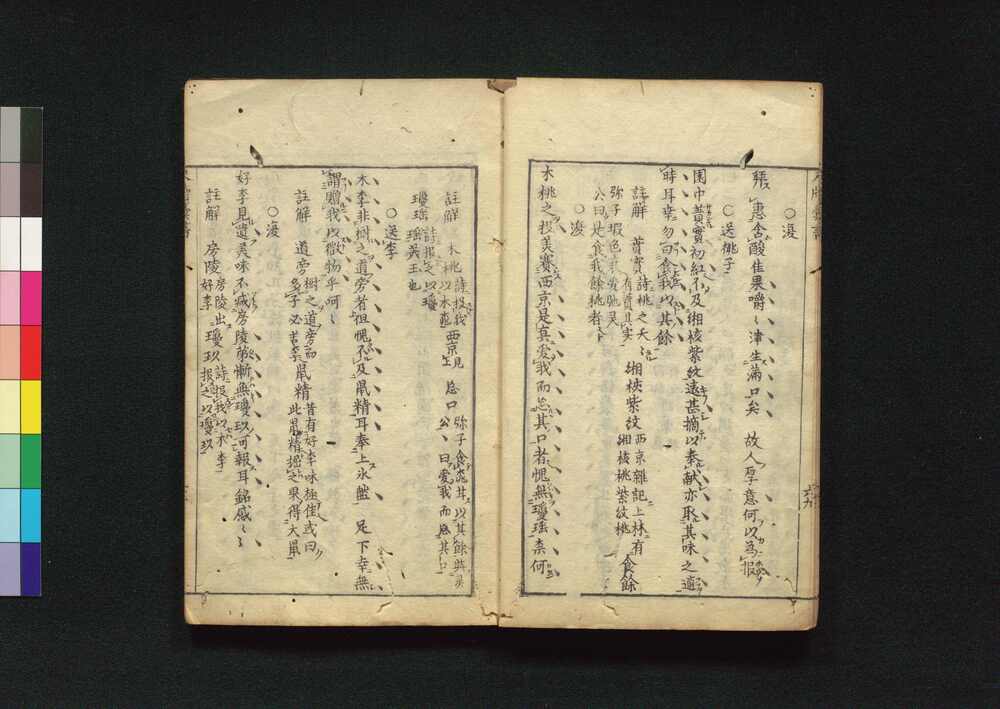 ○復
賬惠含酸佳果嚼〻津生滿口矣 故人厚意何以為報
○送桃子
園中黃實初紅不及緗核紫紋遠甚摘以奉献亦取其味之適
時耳幸勿曰食我以其餘
註解 黃實 詩桃之夭〻 有蕡其實 緗核紫紋 西京雜記上林有緗核桃紫紋桃 食餘
弥子瑕
公曰是食我餘桃者
○復
木桃之投美賽西京是真愛我而忘其口者愧無瓊瑤柰何
註解 木桃 詩投我以木桃 西京 見上 忘口 弥子食桃甘以其餘與灵公〻曰愛我而忘其口
瓊瑤 詩報之以瓊瑤美玉也
○送李
木李非樹之道旁者但愧不及鼠精耳奉上氷盤 足下幸無
謂贈我以微物乎呵〻
註解 道旁 樹之道旁而多子必苦李 鼠精 昔有好李味極佳或曰此鼠精掘之果得大鼠
○復
好李見遺美味不減房陵第慚無瓊玖可報耳銘感〻〻
註解 房陵 房陵出好李 瓊玖 詩投我以木李報之以瓊玖
六九